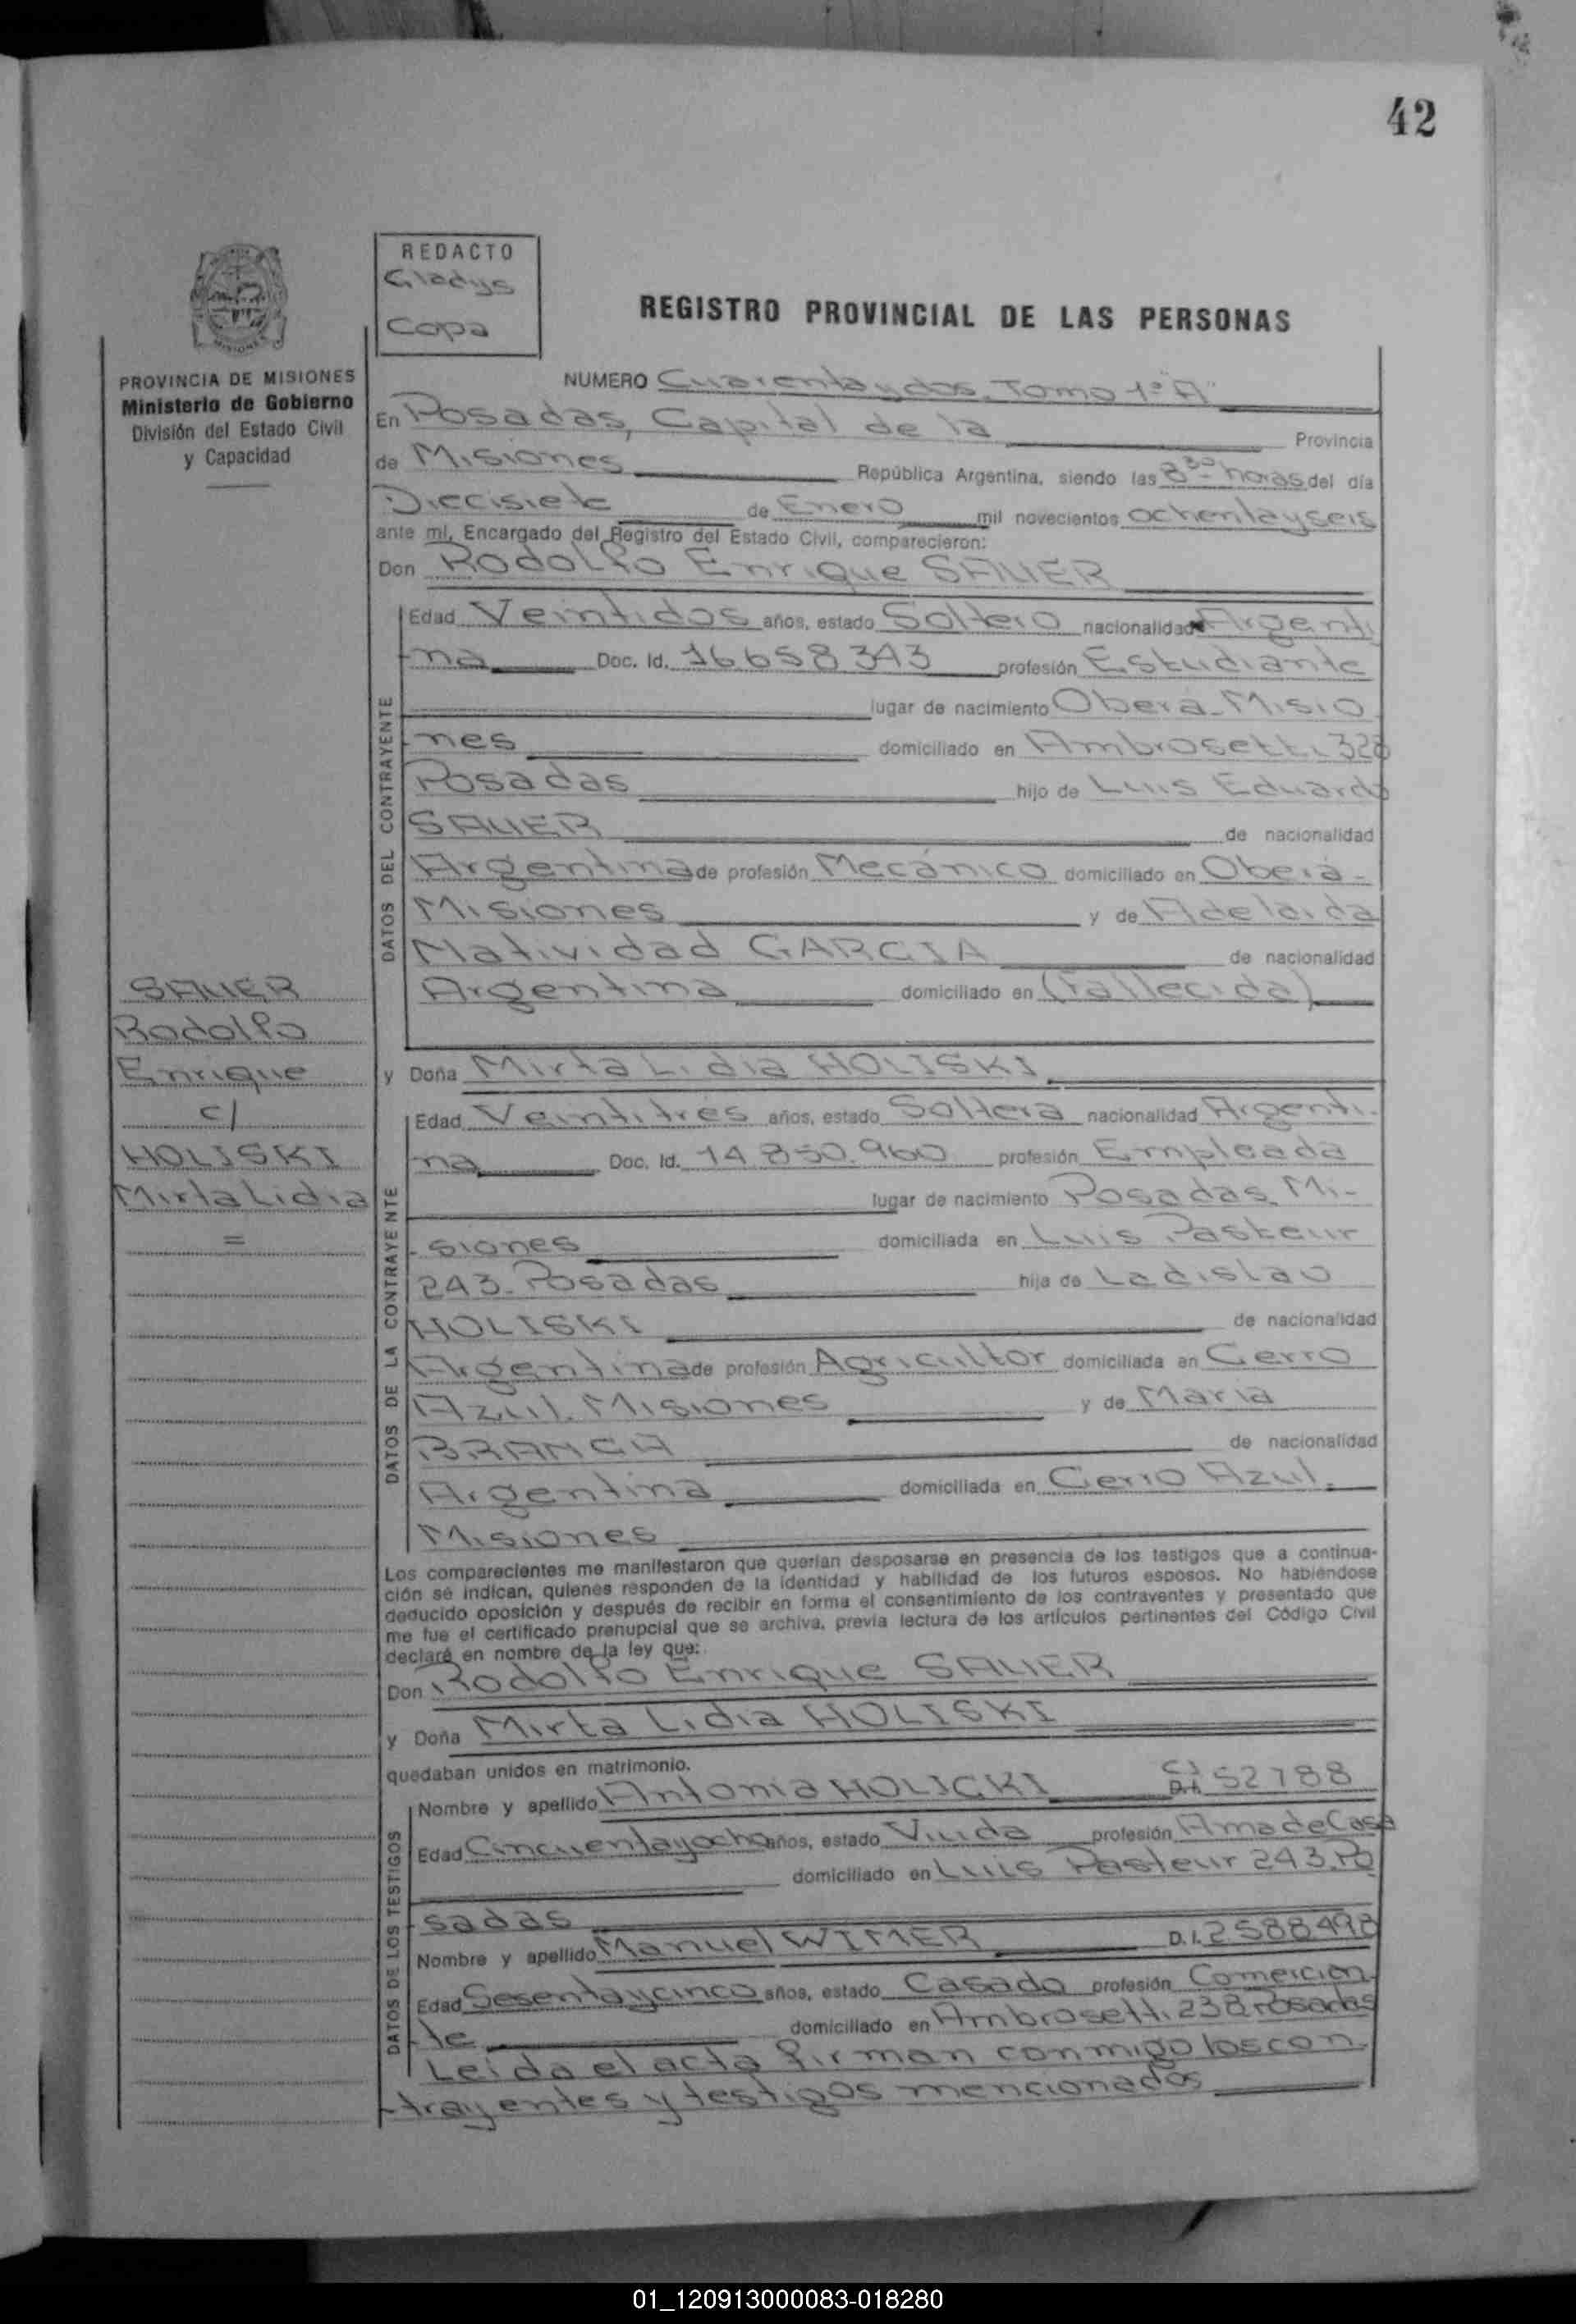 42
REDACTO
Gladys
Copa
REGISTRO PROVINCIAL DE LAS PERSONAS
PROVINCIA DE MISIONES
Ministerio de Gobierno
División del Estado Civil
y Capacidad
NUMERO Cuarentaydos. Tomo 1º "A"
En Posadas, Capital de la Provincia
de Misiones República Argentina, siendo las 8³⁰ horas del día
Diecisiete de Enero mil novecientos ochentayseis
ante mí, Encargado del Registro del Estado Civil, comparecieron:
Don Rodolfo Enrique SAUER
DATOS DEL CONTRAYENTE
Edad Veintidos años, estado Soltero nacionalidad Argenti
na Doc. Id. 16658343 profesión Estudiante
lugar de nacimiento Oberá-Misio
nes domiciliado en Ambrosetti 328
Posadas hijo de Luis Eduardo
SAUER de nacionalidad
Argentina de profesión Mecánico domiciliado en Oberá-
Misiones y de Adelaida
Natividad GARCIA de nacionalidad
Argentina domiciliado en (Fallecida)
SAUER
Rodolfo
Enrique
c/
HOLISKI
Mirta Lidia
=
y Doña Mirta Lidia HOLISKI
DATOS DE LA CONTRAYENTE
Edad Veintitres años, estado Soltera nacionalidad Argenti-
na Doc. Id. 14.850.960 profesión Empleada
lugar de nacimiento Posadas Mi-
siones domiciliada en Luis Pasteur
243-Posadas hija de Ladislao
HOLISKI de nacionalidad
Argentina de profesión Agricultor domiciliada en Cerro
Azul. Misiones y de Maria
BRANCA de nacionalidad
Argentina domiciliada en Cerro Azul.
Misiones
Los comparecientes me manifestaron que querían desposarse en presencia de los testigos que a continua-
ción se indican, quienes responden de la identidad y habilidad de los futuros esposos. No habiéndose
deducido oposición y después de recibir en forma el consentimiento de los contrayentes y presentado que
me fue el certificado prenupcial que se archiva, previa lectura de los artículos pertinentes del Código Civil
declaré en nombre de la ley que:
Don Rodolfo Enrique SAUER
y Doña Mirta Lidia HOLISKI
quedaban unidos en matrimonio.
DATOS DE LOS TESTIGOS
Nombre y apellido Antonia HOLICKI C.I. 52788
Edad Cincuentayocho años, estado Viuda profesión AmadeCasa
domiciliado en Luis Pasteur 243.Po
sadas
Nombre y apellido Manuel WIMER D.I. 2588498
Edad Sesentaycinco años, estado Casado profesión Comercian-
te domiciliado en Ambrosetti 238 Posadas
Leida el acta firman conmigo los con-
trayentes y testigos mencionados
01_120913000083-018280